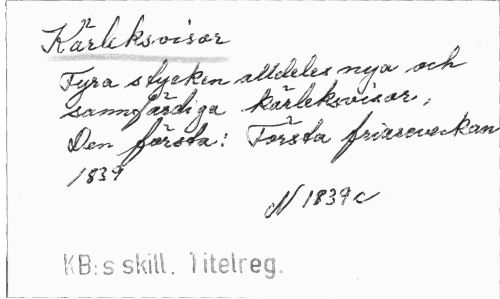 Kärleksvisor
Fyra stycken alldeles nya och
sannfärdiga kärleksvisor,
Den första: Första friareveckan
1839
N 1839c
KB:s skill. Titelreg.